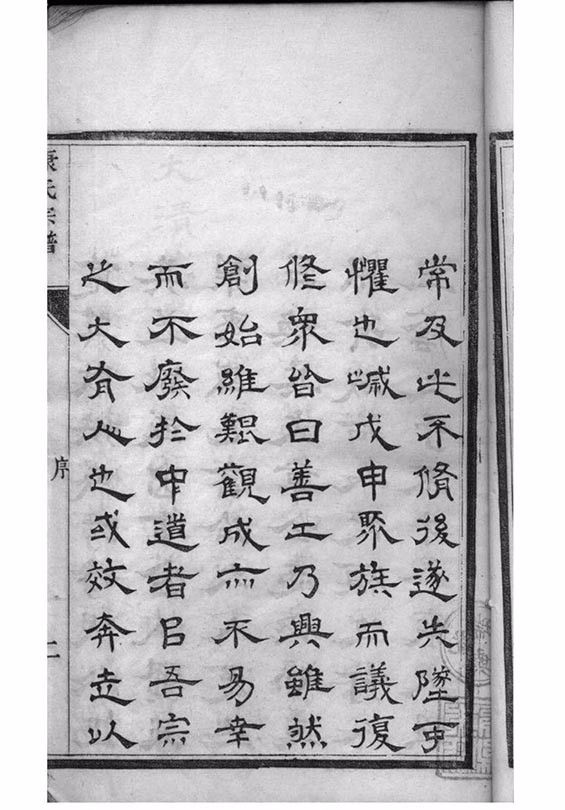 常及此不脩後遂失墜可
懼也歲戊申聚族而議復
修衆皆曰善工乃興雖然
創始維艱觀成亦不易幸
而不廢於中道者㠯吾宗
之大有人也或效奔走以
康氏宗譜
序
二